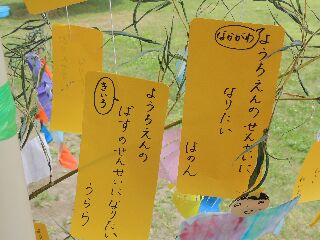 なかがわ
ようちえんのせんせいに
なりたい
はのん
きいろ
ようちえんの
ばすのせんせいになりたい
うらら